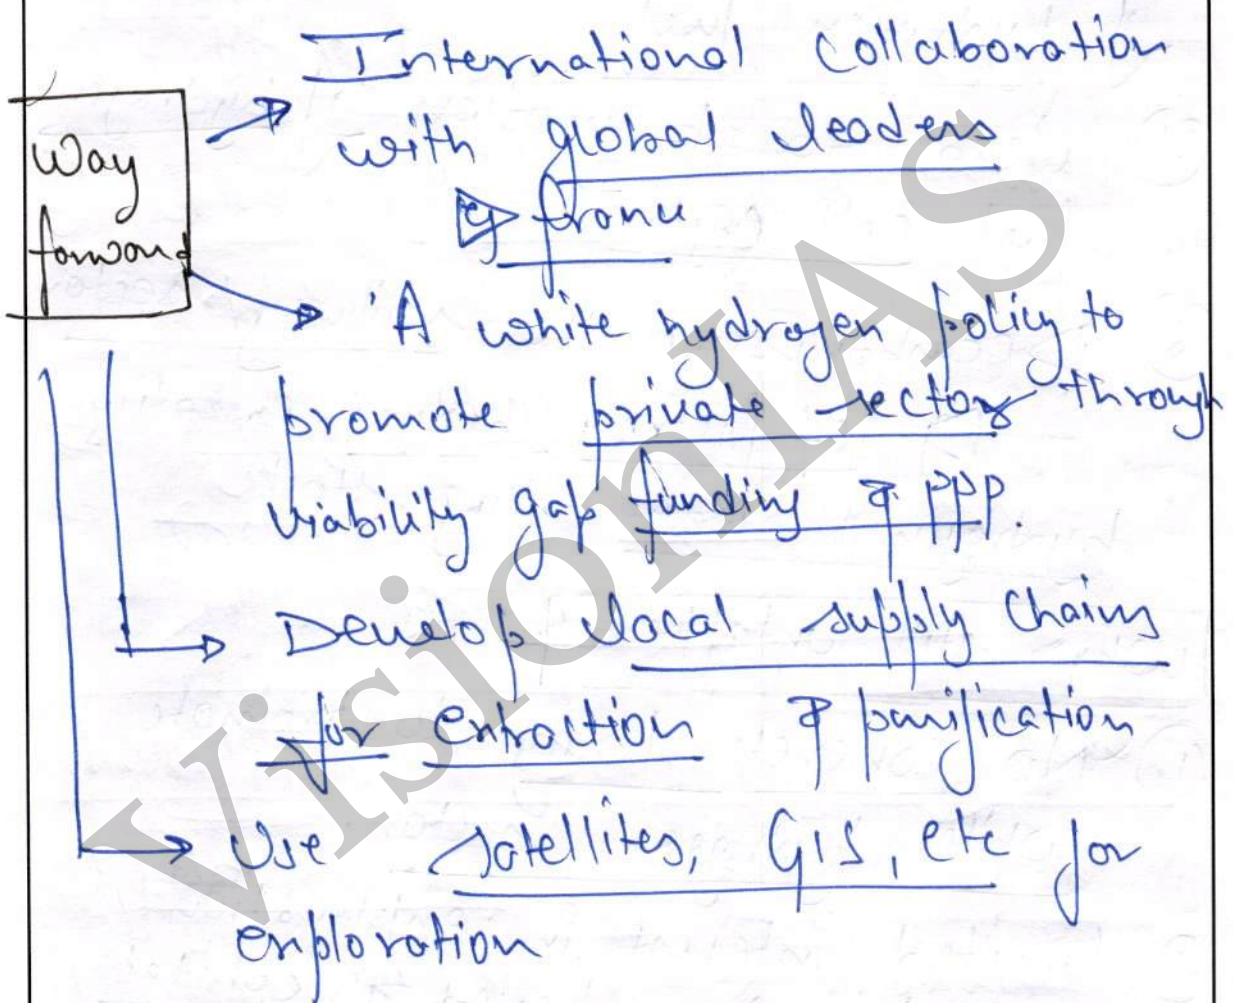 International Collaboration
Way
forward
with global leaders
eg France
A white hydrogen policy to
promote private sector through
viability gap funding & PPP.
Develop local supply chains
for extraction & purification
Use satellites, GIS, etc for
exploration
VisionIAS